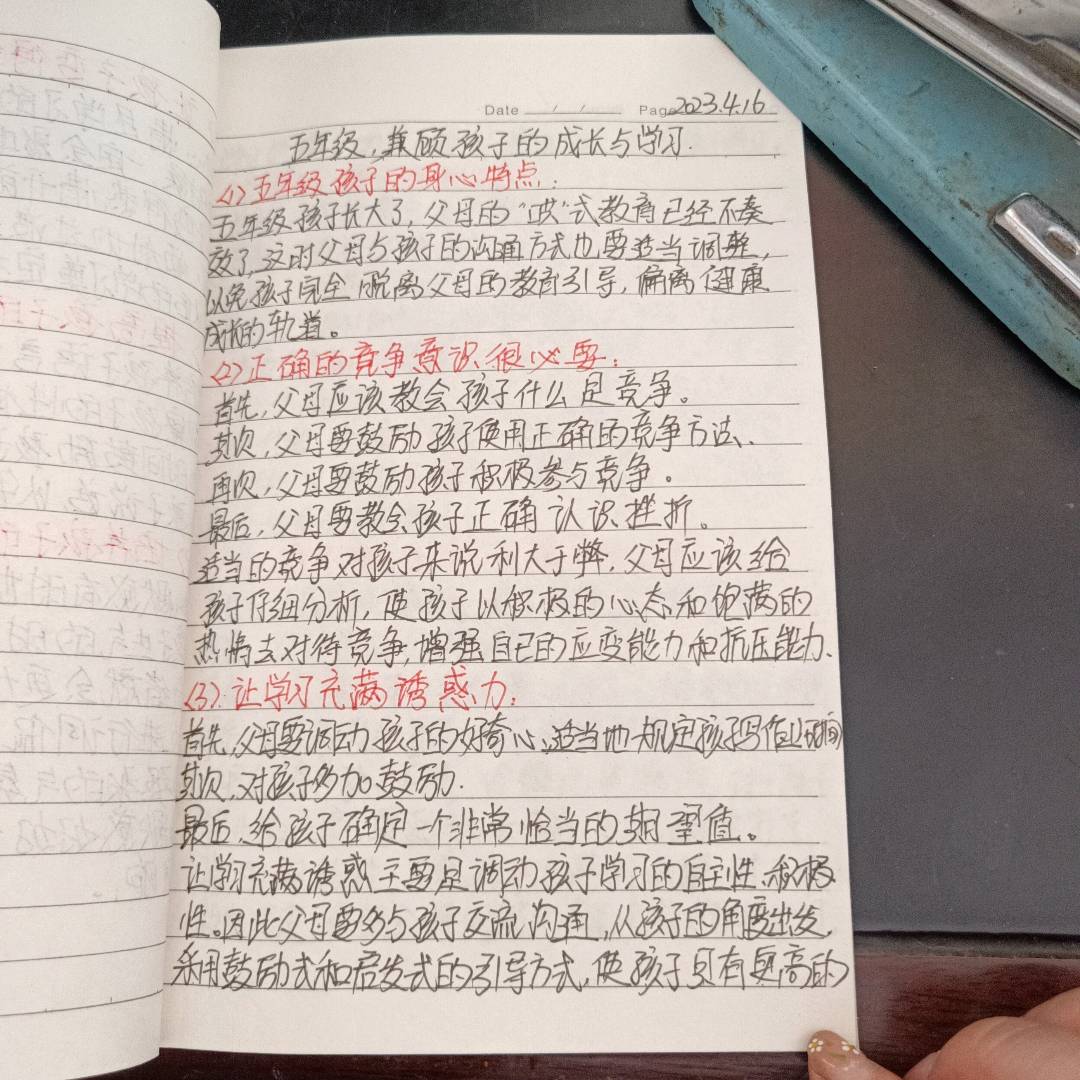 Date / / Page 2023.4.16
五年级,兼顾孩子的成长与学习.
(1)五年级孩子的身心特点:
五年级孩子长大了,父母的“哄”式教育已经不奏
效了,这时父母与孩子的沟通方式也要适当调整,
以免孩子完全脱离父母的教育引导,偏离健康
成长的轨道。
(2)正确的竞争意识很必要:
首先,父母应该教会孩子什么是竞争。
其次,父母要鼓励孩子使用正确的竞争方法.
再次,父母要鼓励孩子积极参与竞争。
最后,父母要教会孩子正确认识挫折。
适当的竞争对孩子来说利大于弊,父母应该给
孩子仔细分析,使孩子以积极的心态和饱满的
热情去对待竞争,增强自己的应变能力和抗压能力.
(3).让学习充满诱惑力:
首先,父母要调动孩子的好奇心、适当地规定孩子写作业时间
其次,对孩子多加鼓励.
最后,给孩子确定一个非常恰当的期望值。
让学习充满诱惑主要是调动孩子学习的自主性、积极
性。因此父母要多与孩子交流沟通,从孩子的角度出发,
采用鼓励式和启发式的引导方式,使孩子具有更高的